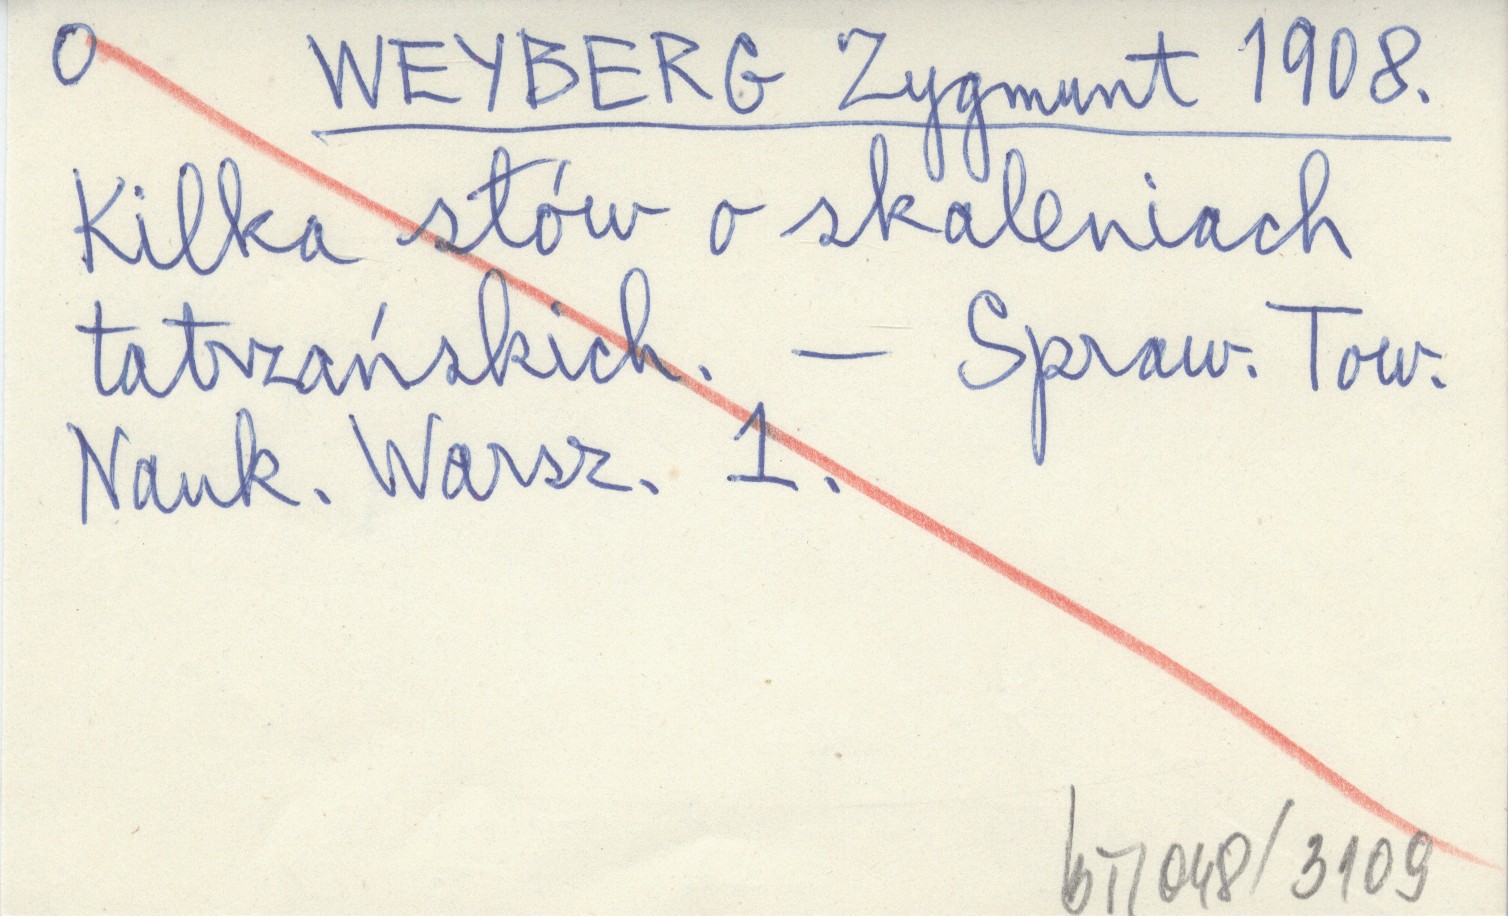 O WEYBERG Zygmunt 1908.
Kilka słów o skaleniach
tatrzańskich. — Spraw. Tow.
Nauk. Warsz. 1.
048/3109